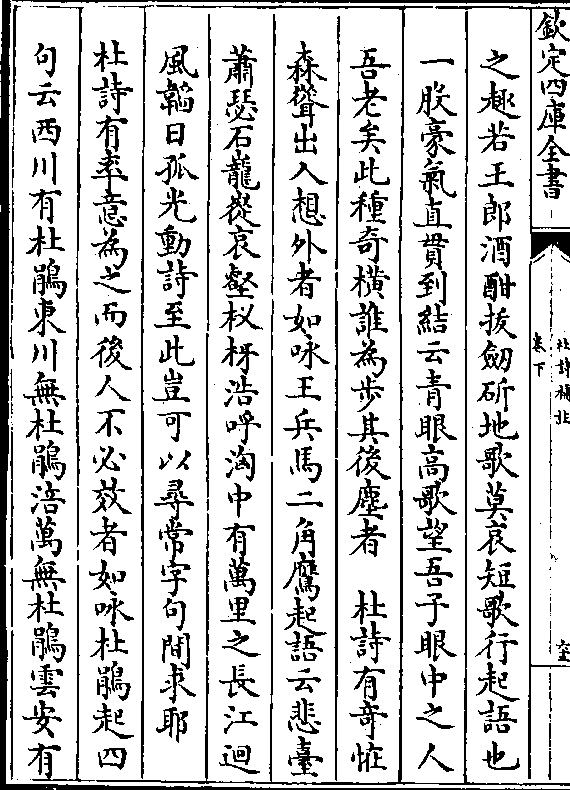 欽定四庫全書
卷下
之趣若王郎酒酣拔劒斫地歌莫哀短歌行起語也
一股豪氣直貫到結云青眼高歌望吾子眼中之人
吾老矣此種奇横誰為步其後塵者　杜詩有奇恠
森聳出入想外者如咏王兵馬二角鷹起語云悲臺
蕭瑟石巃嵸哀壑杈枒浩呼洶中有萬里之長江迴
風韜日孤光動詩至此豈可以尋常字句間求耶
杜詩有率意為之而後人不必效者如咏杜鵑起四
句云西川有杜鵑東川無杜鵑涪萬無杜鵑雲安有